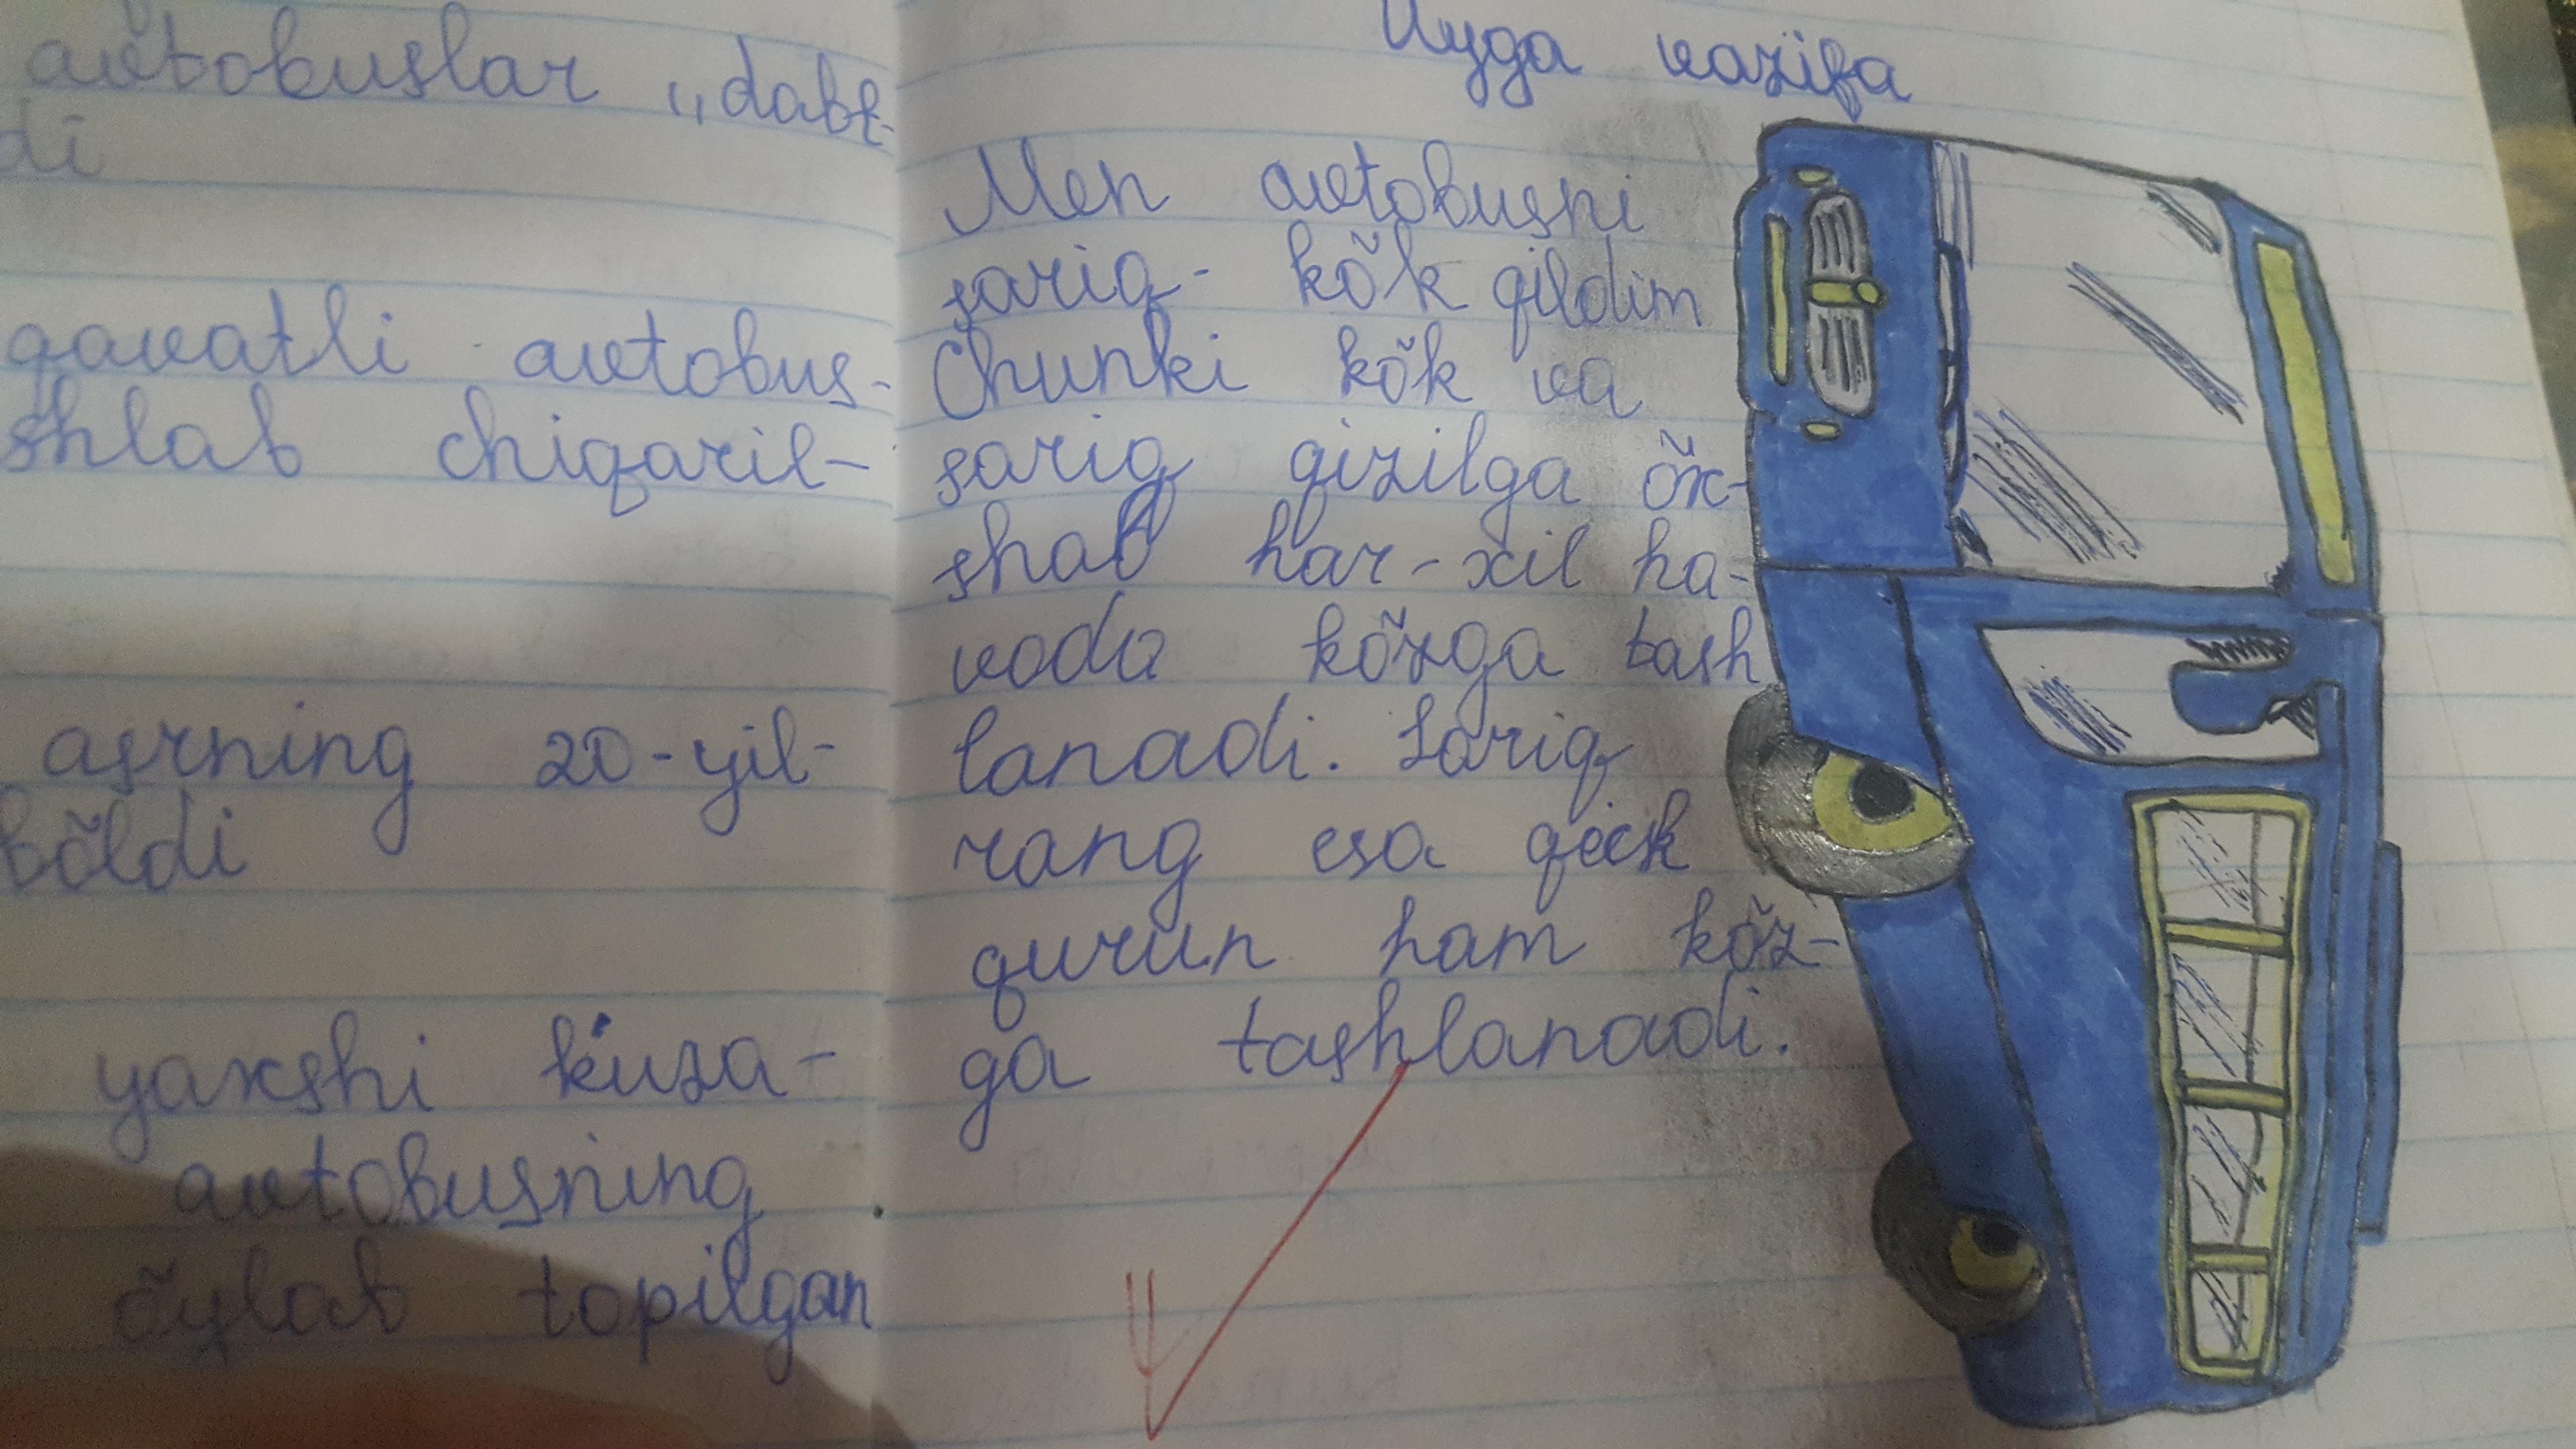 avtobuslar „dabt-
di
qavatli avtobus-
shlab chiqaril-
asrning 20-yil-
bõldi
yaxshi kuza-
avtobusning
õylab topilgan
Uyga vazifa
Men avtobusni
sariq- kõk qildim
Chunki kõk va
sariq qizilga õx-
shab har-xil ha-
voda kõzga tash
lanadi. Sariq
rang esa qeck
qurun ham kõz-
ga tashlanadi.